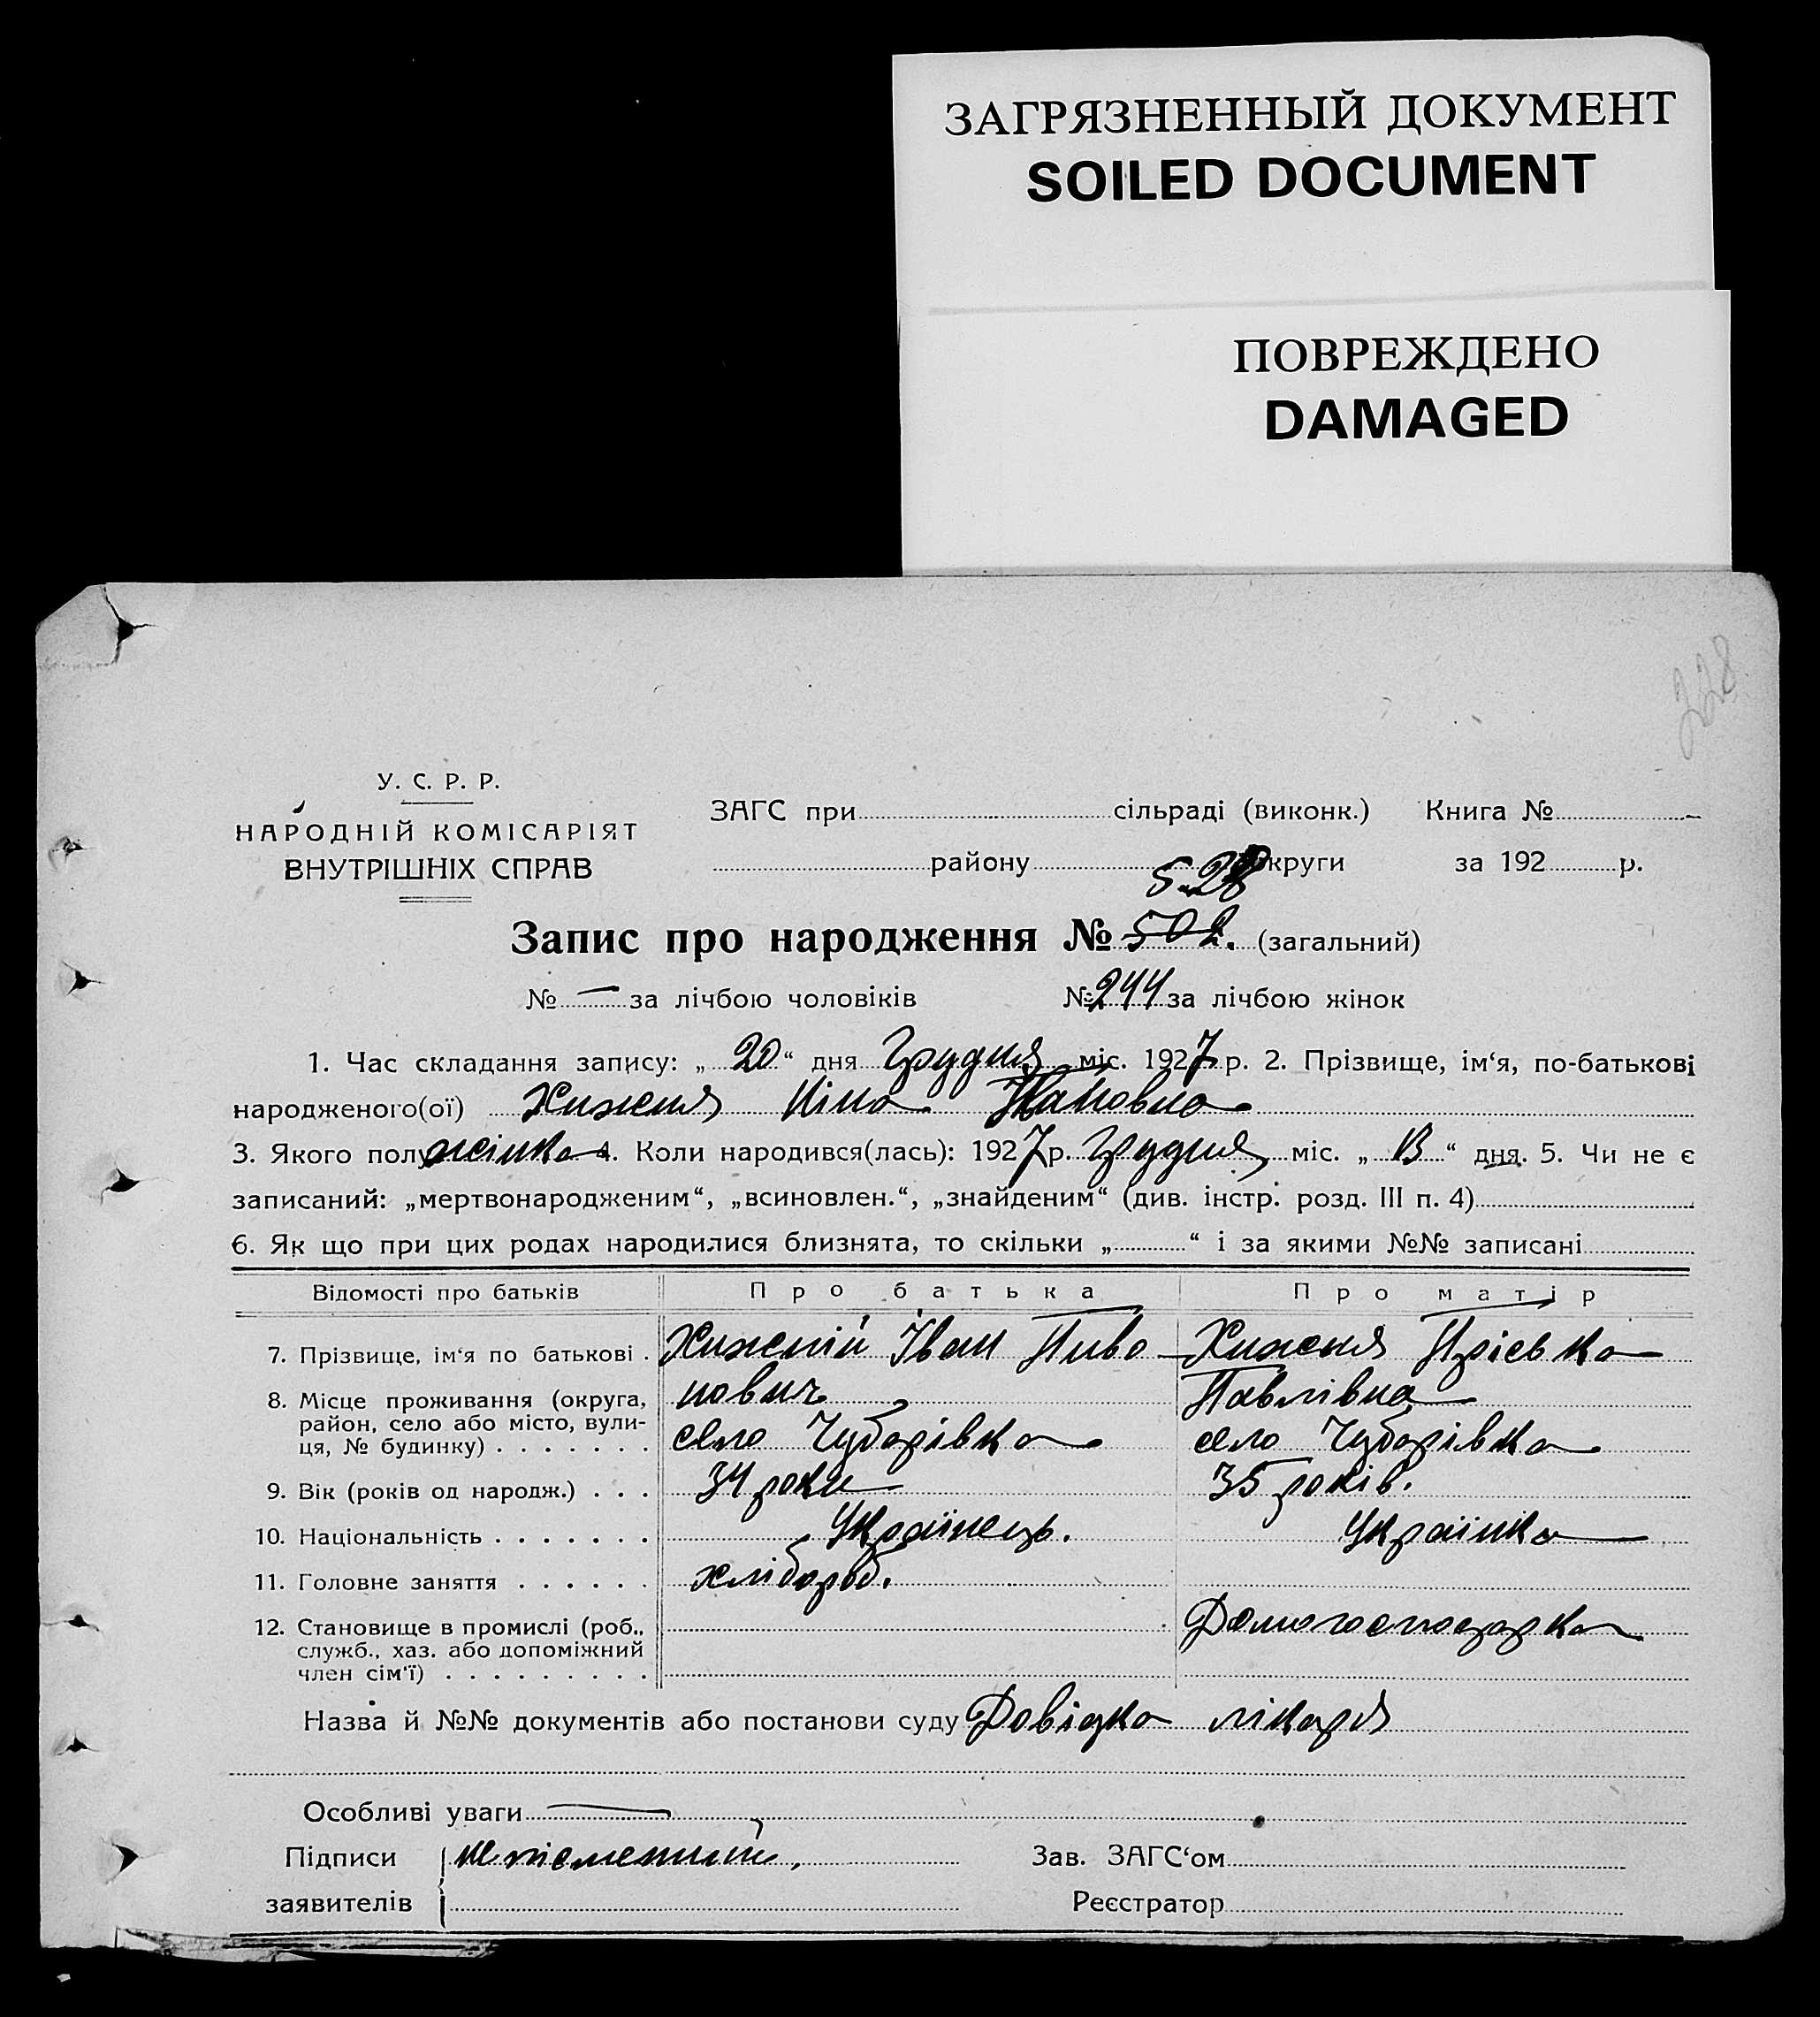 ЗАГРЯЗНЕННЫЙ ДОКУМЕНТ
SOILED DOCUMENT
ПОВРЕЖДЕНО
DAMAGED
328
У. С. Р. Р.
НАРОДНІЙ КОМІСАРІЯТ
ВНУТРІШНІХ СПРАВ
ЗАГС при сільраді (виконк.) Книга №
району округи за 192 р.
528
Запис про народження № 502. (загальний)
№ — за лічбою чоловіків № 244 за лічбою жінок
1. Час складання запису: „ 20 “ дня Грудня міс. 1927 р. 2. Прізвище, ім‘я, по-батькові
народженого(ої) Хижня Ніна Івановна
3. Якого полу жінка 4. Коли народився(лась): 1927 р. Грудня міс. „ 13 “ дня. 5. Чи не є
записаний: „мертвонародженим“, „всиновлен.“, „знайденим“ (див. інстр. розд. III п. 4)
6. Як що при цих родах народилися близнята, то скільки „ “ і за якими №№ записані
Відомості про батьків Про батька Про матір
7. Прізвище, ім‘я по батькові . Хижній Іван Пиво Хижня
8. Місце проживання (округа, нович Павлівна
район, село або місто, вули-
ця, № будинку) . . . . . . . село Чубарівка село Чубарівка
9. Вік (років од народж.) . . . 34 роки 35 років.
10. Національність . . . . . . . Українець. Українка
11. Головне заняття . . . . . . хлібороб.
12. Становище в промислі (роб., Домогосподарка
служб., хаз. або допоміжний
член сім‘ї) . . . . . . . . .
Назва й №№ документів або постанови суду Довідка лікаря
Особливі уваги —
Підписи неписьменний. Зав. ЗАГС‘ом
заявителів Реєстратор